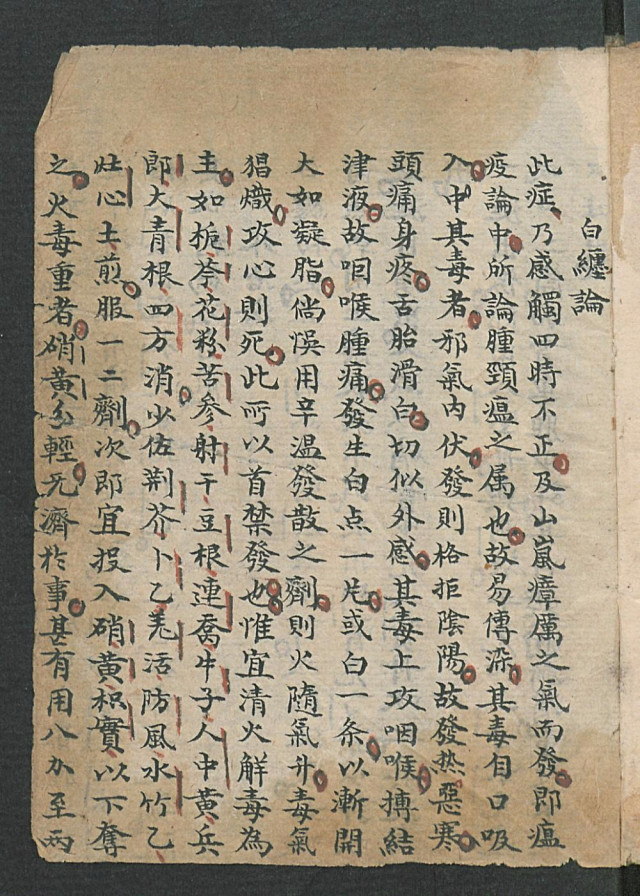 白纏論
此症乃感觸四時不正及山嵐瘴厲之氣而發即瘟
疫論中所論腫頸瘟之属也故易傳染其毒自口吸
入中其毒者邪氣内伏發則格拒陰陽故發热惡寒
頭痛身疼舌胎滑白切似外感其毒上攻咽喉摶結
津液故咽喉腫痛發生白点一片或白一条以漸開
大如凝脂倘悞用辛温發散之劑則火隨氣升毒氣
猖熾攻心則死此所以首禁發也惟宜清火解毒為
主如栀芩花粉苦参射干豆根連喬牛子人中黄兵
郎大青根四方消少佐荆芥卜乙羌活防風水竹乙
灶心土煎服一二劑次即宜投入硝黄枳實以下奪
之火毒重者硝黄分輕无濟於事甚有用八分至两